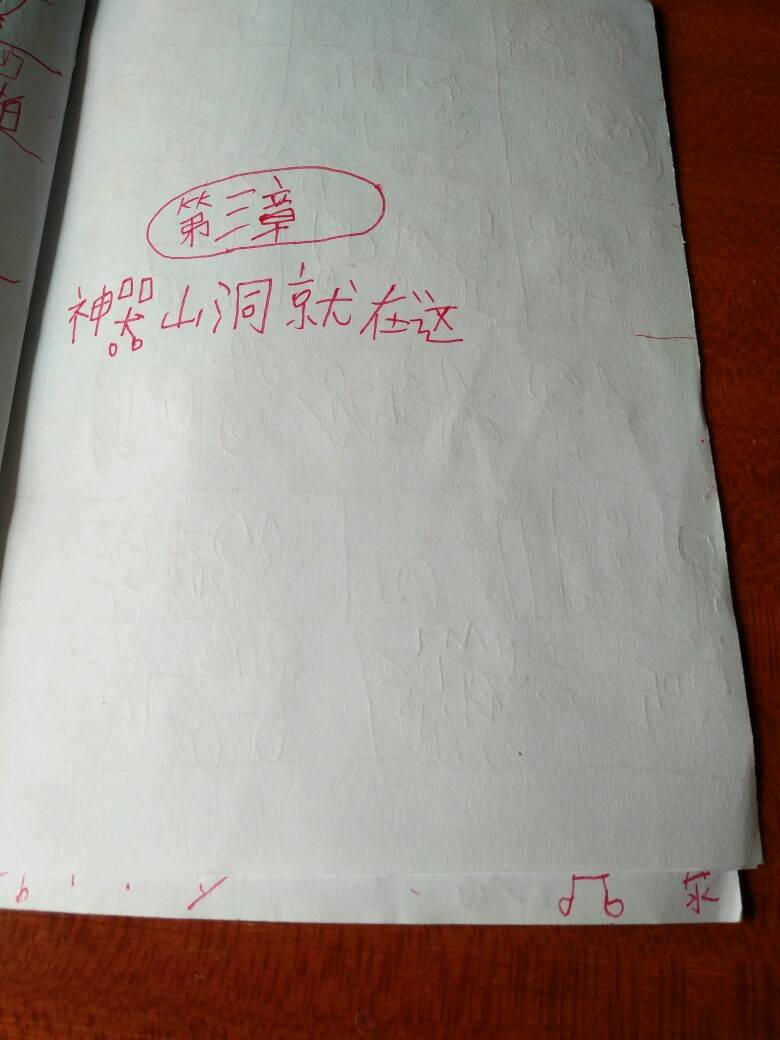 第三章
神器山洞就在这